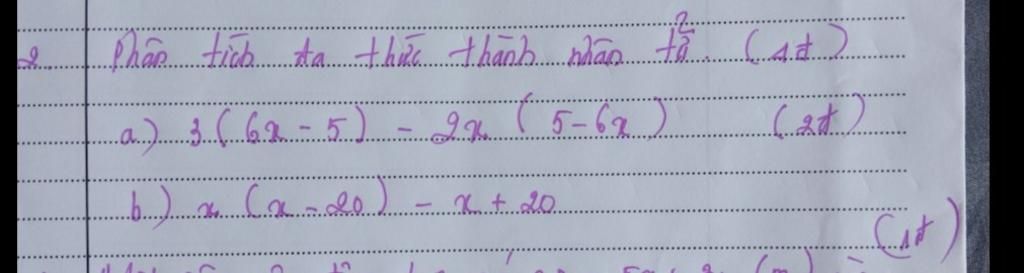 2. Phân tích đa thức thành nhân tử. (1đ)
a) 3(6x - 5) - 2x (5-6x) (2đ)
b) x (x - 20) - x + 20
(1đ)